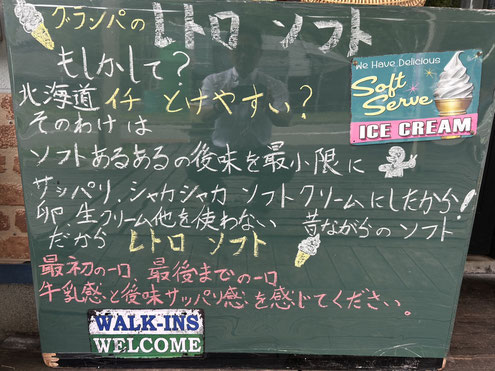 グランパの レトロ ソフト
もしかして？
北海道 イチ とけやすい？
そのわけは
ソフトあるあるの後味を最小限に
サッパリ、シャカシャカ ソフトクリームにしたから！
卵 生クリーム他を使わない 昔ながらの ソフト
だから レトロ ソフト
最初の一口、最後までの一口
牛乳感と後味サッパリ感を感じてください。
We Have Delicious
Soft
Serve
ICE CREAM
WALK-INS
WELCOME